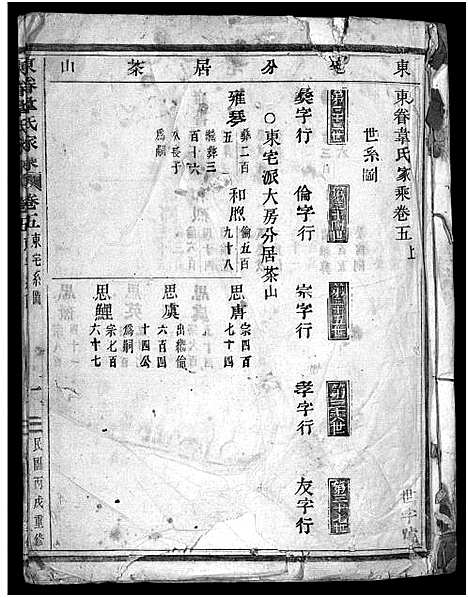 東宅分居茶山
東眷韋氏家乘卷五上
世系圖
第三十三世
彝字行
第三十四世
倫字行
第三十五世
宗字行
第三十六世
孝字行
第三十七世
友字行
○東宅派大房分居茶山
雍琴
彝二百
五
繼彝三
百十六
公長子
爲嗣
和煦
倫五百
九十八
思唐
宗四百
七十四
思虞
出繼倫
六百四
十四公
爲嗣
思鯉
宗七百
六十七
東眷韋氏家乘
卷五
東宅系圖
一
民國丙戌重修